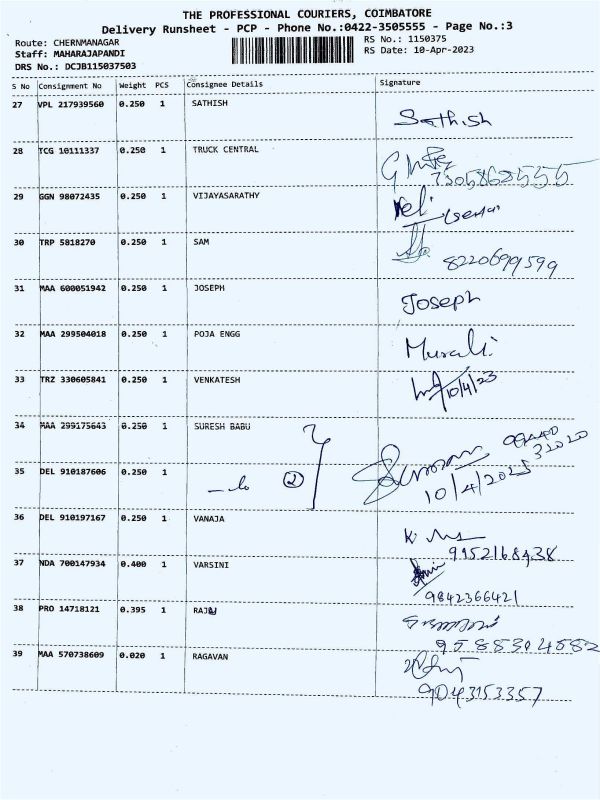 THE PROFESSIONAL COURIERS, COIMBATORE
Delivery Runsheet - PCP - Phone No.:0422-3505555 - Page No.:3
Route: CHERNMANAGAR
RS No.: 1150375
Staff: MAHARAJAPANDI
RS Date: 10-Apr-2023
DRS No.: DCJB115037503
S No Consignment No Weight PCS Consignee Details Signature
27 VPL 217939560 0.250 1 SATHISH
Sathish
28 TCG 10111337 0.250 1 TRUCK CENTRAL
29 GGN 98072435 0.250 1 VIJAYASARATHY
30 TRP 5818270 0.250 1 SAM
8220699599
31 MAA 600051942 0.250 1 JOSEPH
Joseph
32 MAA 299504018 0.250 1 POJA ENGG
Murali
33 TRZ 330605841 0.250 1 VENKATESH
10/4/23
34 MAA 299175643 0.250 1 SURESH BABU
35 DEL 910187606 0.250 1
2
10/4/2023
36 DEL 910197167 0.250 1 VANAJA
9952168438
37 NDA 700147934 0.400 1 VARSINI
9842366421
38 PRO 14718121 0.395 1 RAJU
9588304882
39 MAA 570738609 0.020 1 RAGAVAN
9043153357